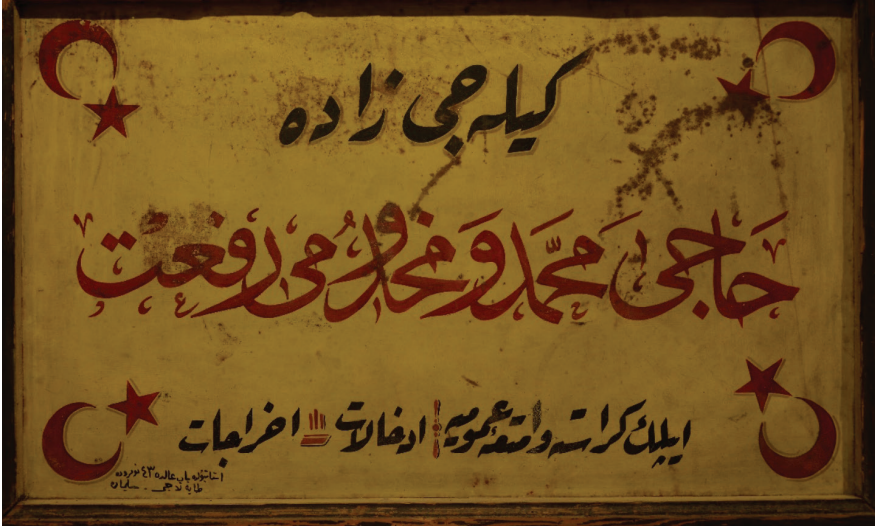 كیله جی زاده
حاجی محمد و مخدومی رفعت
ایپلك كراسته وامتعهٔ عمومیه ادخالات اخراجات
استانبول باب عالیده ٤٣ نومروده
سلیمان